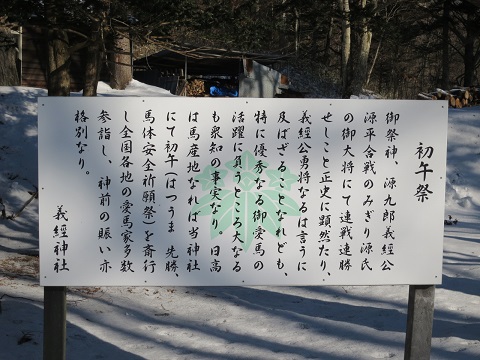 初午祭
御祭神、源九郎義經公
源平合戦のみぎり源氏
の御大将にて連戦連勝
せしこと正史に顕然たり、
義經公勇将なるは言うに
及ばざることなれども、
特に優秀なる御愛馬の
活躍に負うところ大なる
も衆知の事実なり、日高
は馬産地なれば当神社
にて初午(はつうま 先勝、
馬体安全祈願祭)を斎行
し全国各地の愛馬家多数
参詣し、神前の賑い亦
格別なり。
義經神社